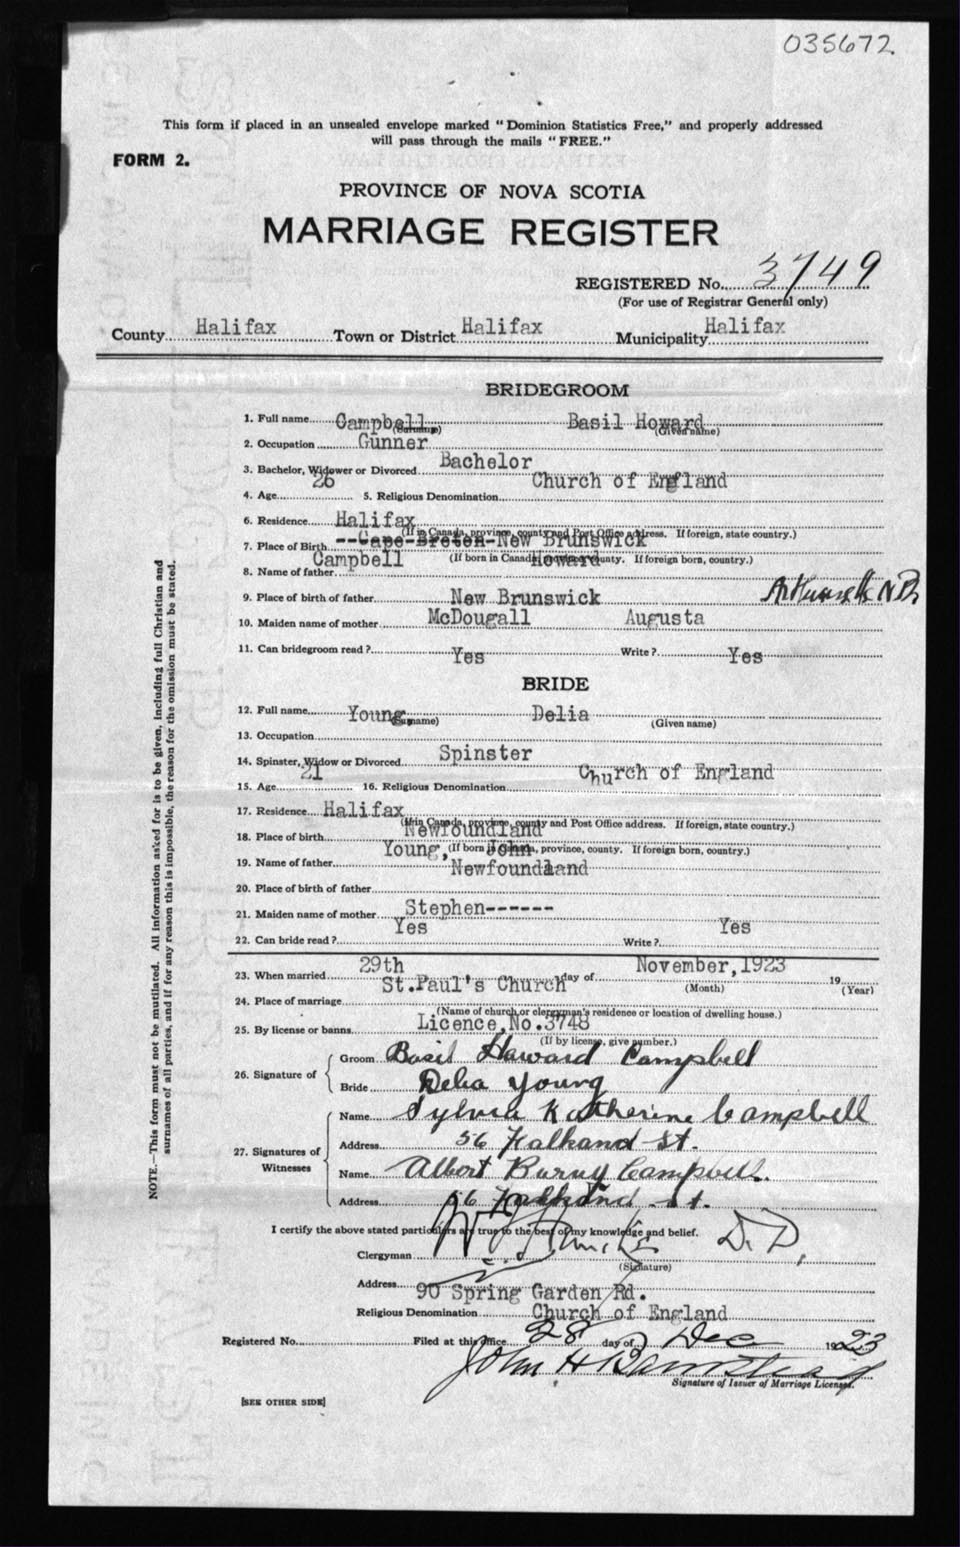 035672.
This form if placed in an unsealed envelope marked "Dominion Statistics Free," and properly addressed
will pass through the mails "FREE."
FORM 2.
PROVINCE OF NOVA SCOTIA
MARRIAGE REGISTER
REGISTERED No. 3749
(For use of Registrar General only)
County Halifax Town or District Halifax Municipality Halifax
BRIDEGROOM
1. Full name Campbell (Surname) Basil Howard (Given name)
2. Occupation Gunner
3. Bachelor, Widower or Divorced Bachelor
4. Age 26 5. Religious Denomination Church of England
6. Residence Halifax
(If in Canada, province, county and Post Office address. If foreign, state country.)
7. Place of Birth --Cape-Breton-New Brunswick
(If born in Canada, province, county. If foreign born, country.)
8. Name of father Campbell Howard
9. Place of birth of father New Brunswick N.B.
10. Maiden name of mother McDougall Augusta
11. Can bridegroom read? Yes Write? Yes
BRIDE
12. Full name Young (Surname) Delia (Given name)
13. Occupation
14. Spinster, Widow or Divorced Spinster
15. Age 21 16. Religious Denomination Church of England
17. Residence Halifax
(If in Canada, province, county and Post Office address. If foreign, state country.)
18. Place of birth Newfoundland
(If born in Canada, province, county. If foreign born, country.)
19. Name of father Young, John
20. Place of birth of father Newfoundland
21. Maiden name of mother Stephen------
22. Can bride read? Yes Write? Yes
23. When married 29th day of November, 1923 (Month) 19 (Year)
24. Place of marriage St.Paul's Church
(Name of church or clergyman's residence or location of dwelling house.)
25. By license or banns Licence, No. 3748
(If by license, give number.)
26. Signature of Groom Basil Howard Campbell
Bride Delia Young
27. Signatures of Witnesses Name Sylvia Katherine Campbell
Address 56 Falkand St.
Name Albert Burny Campbell.
Address 56 Falkland St.
I certify the above stated particulars are true to the best of my knowledge and belief.
Clergyman D.D.
(Signature)
Address 90 Spring Garden Rd.
Religious Denomination Church of England
Registered No. Filed at this office 28 day of Dec 1923
John H Barnstead
Signature of Issuer of Marriage Licenses.
[SEE OTHER SIDE]
NOTE.—This form must not be mutilated. All information asked for is to be given, including full Christian and
surnames of all parties, and if for any reason this is impossible, the reason for the omission must be stated.